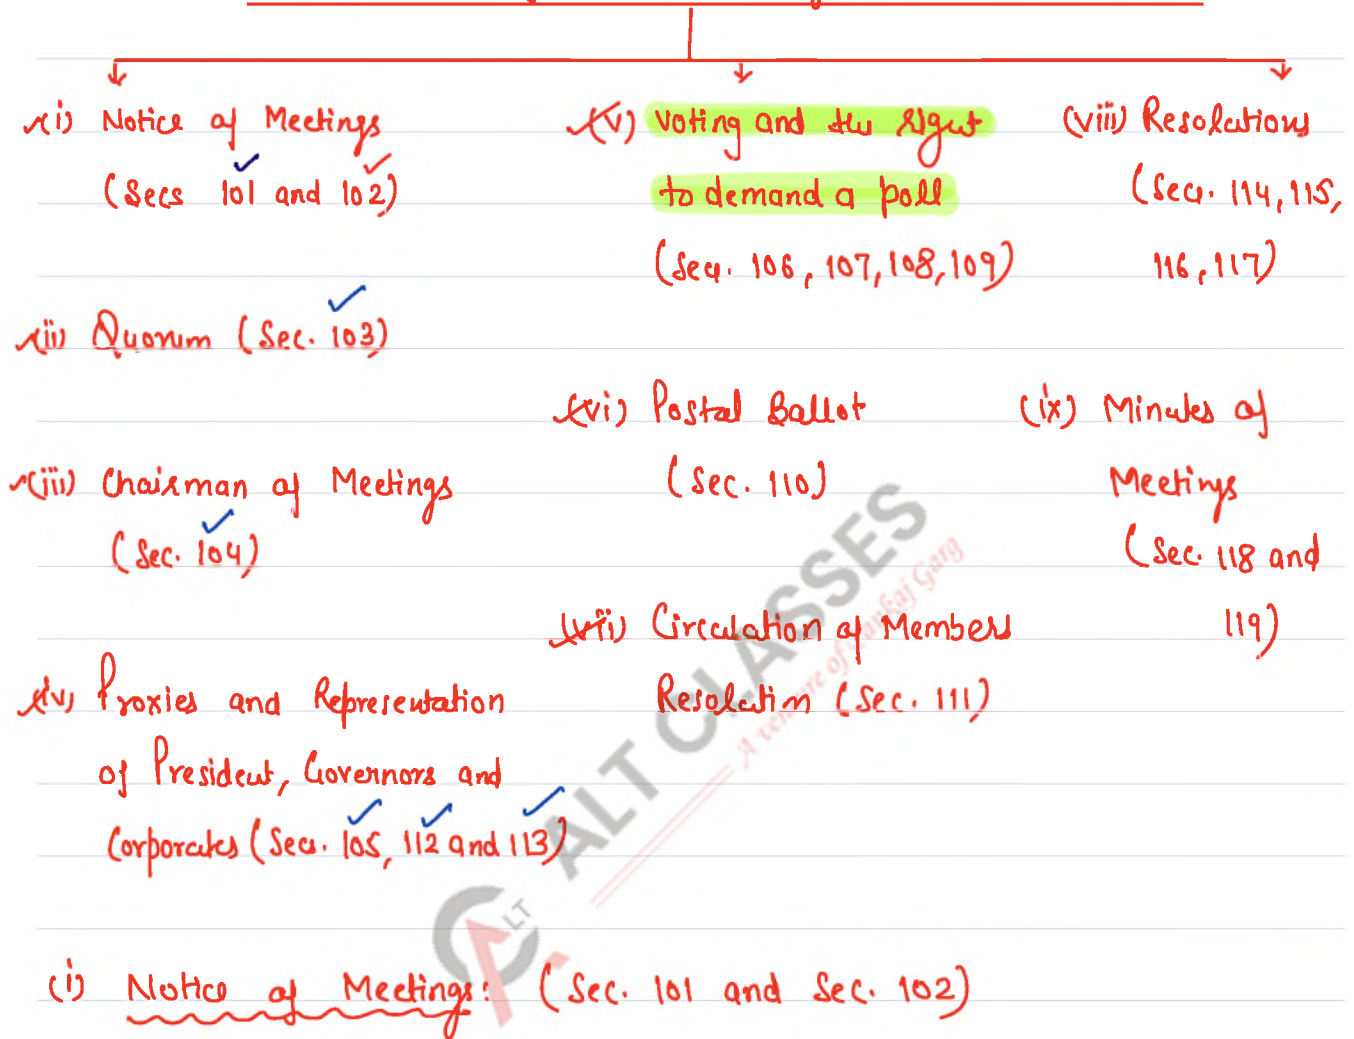 (i) Notice of Meetings
(Secs 101 and 102)
(ii) Quorum (Sec. 103)
(iii) Chairman of Meetings
(Sec. 104)
(iv) Proxies and Representation
of President, Governors and
Corporates (Secs. 105, 112 and 113)
(v) Voting and the Right
to demand a poll
(Secs. 106, 107, 108, 109)
(vi) Postal Ballot
(Sec. 110)
(vii) Circulation of Members
Resolution (Sec. 111)
(viii) Resolutions
(Secs. 114, 115,
116, 117)
(ix) Minutes of
Meetings
(Sec. 118 and
119)
ALT CLASSES
A venture of Pankaj Garg
LT
(i) Notice of Meetings: (Sec. 101 and Sec. 102)